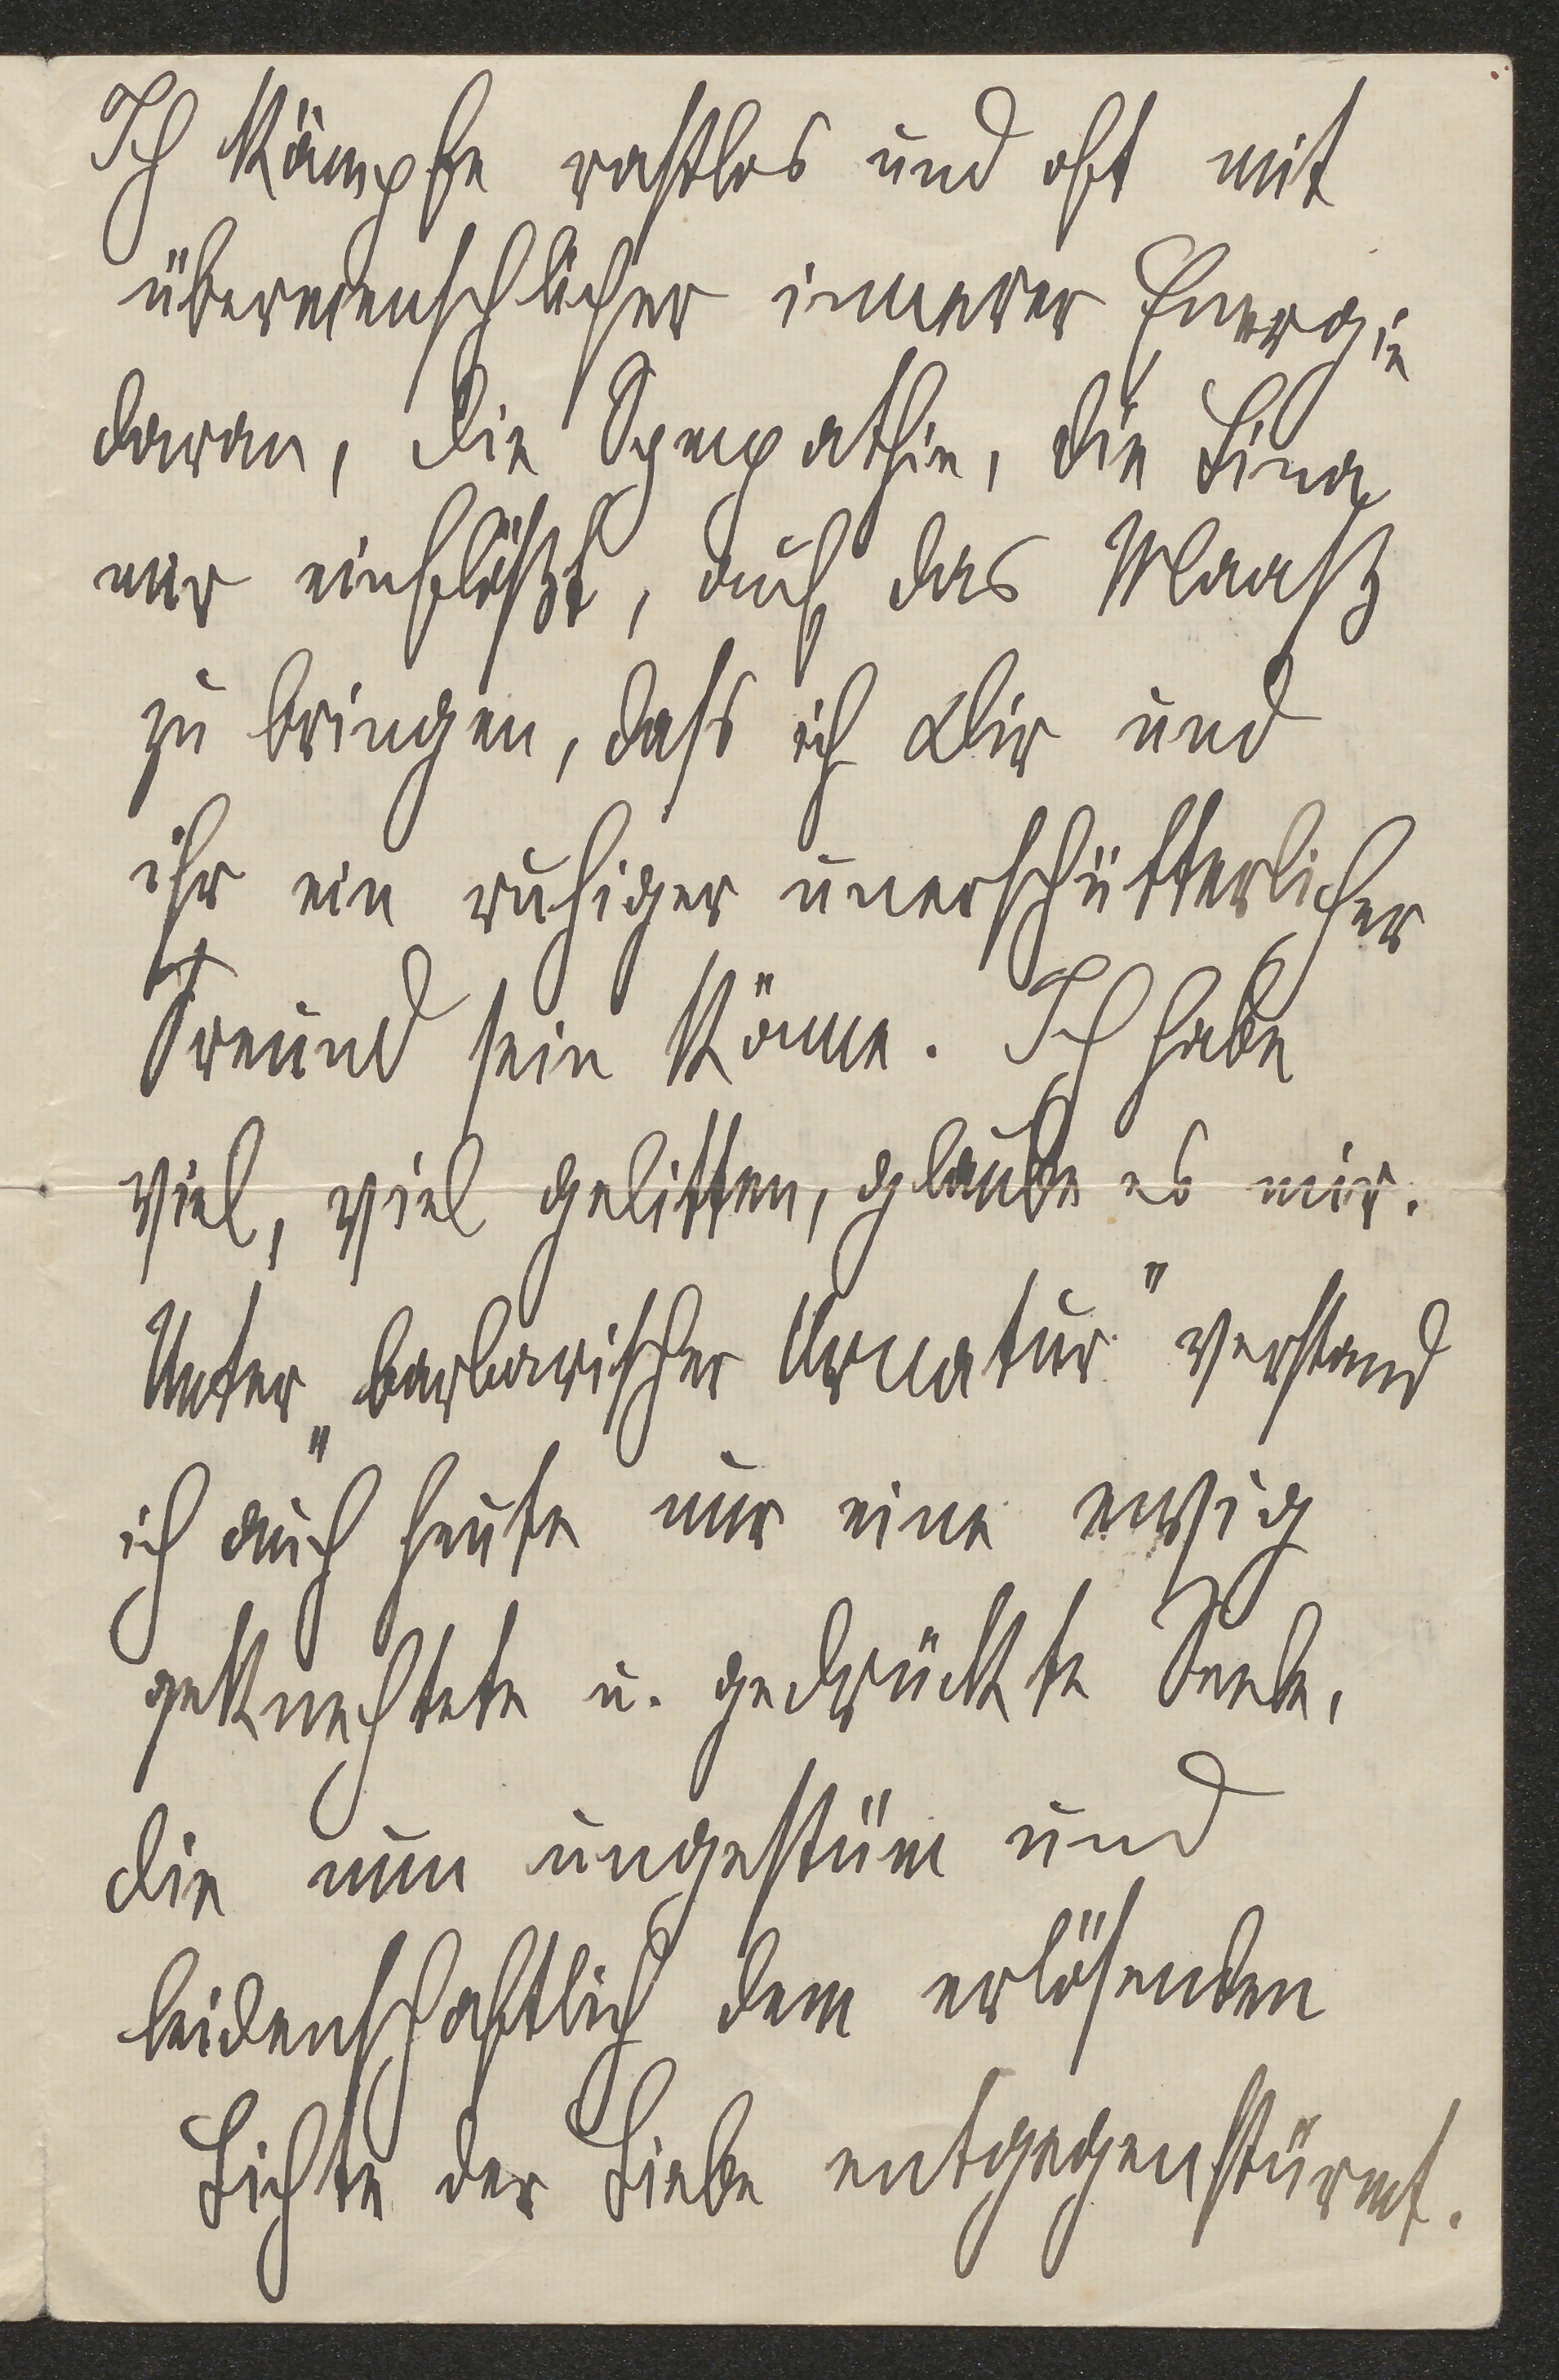 Ich kämpfe rastlos und oft mit
übermenschlicher innerer Energie
daran, die Sympathie, die Lina
mir einflößt, auf das Maaß
zu bringen, dass ich Dir und
ihr ein ruhiger unerschütterlicher
Freund sein könne. Ich habe
viel, viel gelitten, glaube es mir.
Unter „barbarischer Urnatur" verstand
ich auch heute nur eine ewig
geknechtete u. gedrückte Seele,
die nun ungestüm und
leidenschaftlich dem erlösenden
Lichte der Liebe entgegenstürmt.